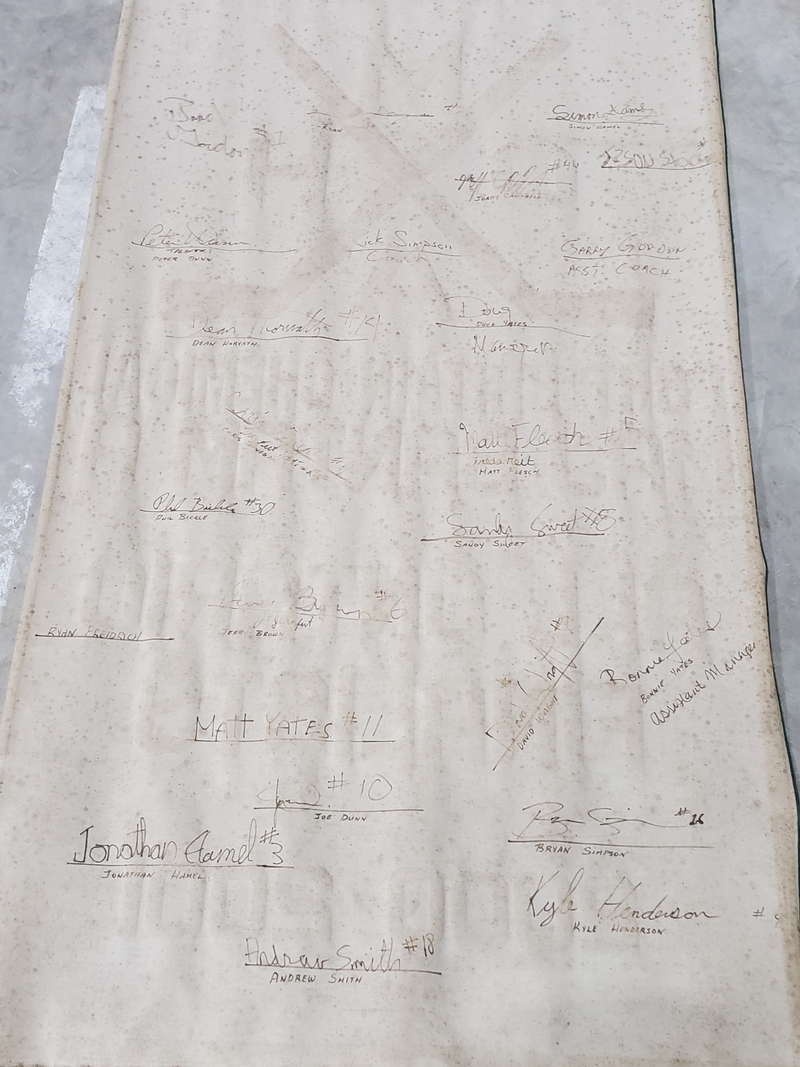 Brad
Gordon #1
RYAN
Simon Hamel
SIMON HAMEL
#44
JORDY CAMPBELL
Peter Dunn
TRAINER
PETER DUNN
Rick Simpson
Coach
GARRY GORDON
ASST. COACH
Dean Horvath #14
DEAN HORVATH
Doug
DOUG YATES
Manager
Matt Flesch #
MATT FLESCH
Phil Bickle #30
PHIL BICKLE
Sandy Sweet #5
SANDY SWEET
Jerry Brown #6
JERRY BROWN
RYAN FREIDRICH
David Wright #
DAVID WRIGHT
Bonnie Yates
BONNIE YATES
Assistant Manager
MATT YATES #11
Joe D. #10
JOE DUNN
Jonathan Hamel #3
JONATHAN HAMEL
#16
BRYAN SIMPSON
Kyle Henderson #9
KYLE HENDERSON
Andrew Smith #18
ANDREW SMITH